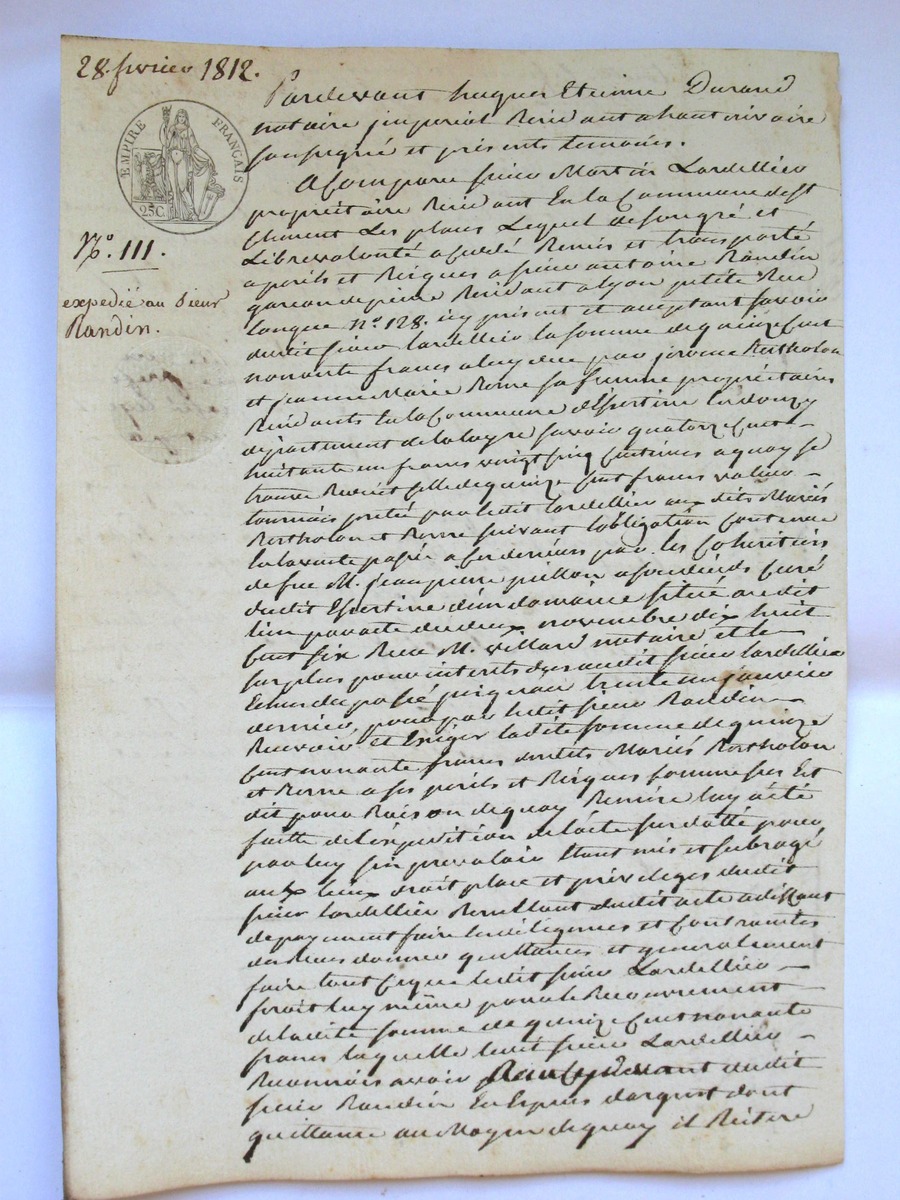 28. fevrier 1812.
EMPIRE FRANÇAIS
25C.
N.o 111.
expedié au Sieur
Randin.
Pardevant hugues Etienne Durand
notaire imperial Residant a hauterivoire
soussigné et présents temoins.
A Comparu sieur Martin Lardellier
propriétaire Residant En la Commune de St
Clement Les places Lequel de son gré et
Libre volonté a cedé Remis et transporté
a perils et Risques a sieur antoine Randin
garcon de peine Residant a lyon petite Rue
longue N.o 128. icy présent et acceptant savoir
dudit sieur Lardellier la somme de quinze Cent
nonante francs a luy due par jerome Bertholon
et jeanne Marie Ronne sa femme propriétaires
Residants En la Commune d'Essertine En donzy
département de la loyre savoir quatorze Cent
huitante un francs vingt cinq Centimes a quoy se
trouve Reduit Celle de quinze Cent francs valeur
tournois pretée par ledit Lardellier aux dits Mariés
Bertholon et Ronne suivant l'obligation Contenue
En la vente passée a Ces derniers par les Cohéritiers
de feu M. jean pierre pillon a son décès Curé
dudit Essertine d'un domaine situé audit
lieu par acte du deux novembre dix huit
Cent six Reçu M. Villard notaire et le
surplus pour interets dus audit sieur Lardellier
Echus du passé jusqu'au trente un janvier
dernier, pour par ledit sieur Randin
Recevoir et Exiger ladite somme de quinze
Cent nonante francs desdits Mariés Bertholon
et Ronne a ses perils et Risques Comme sus Est
dit pour Raison de quoy Remise luy a été
faite de l'expedition de l'acte sus datté pour
par luy s'en prevaloir Etant mis et subrogé
aux lieux droit place et privileges dudit
sieur Lardellier Resultant dudit acte a deffaut
de payement faire les diligences et Contraintes
du Reçu donner quittances et generalement
faire tout Ce que ledit sieur Lardellier
feroit luy même pour le Recouvrement
de ladite somme de quinze Cent nonante
francs laquelle ledit sieur Lardellier
Reconnois avoir Reçu Cydevant dudit
sieur Randin En Espèces d'argent dont
quittance au Moyen de quoy il Réitere